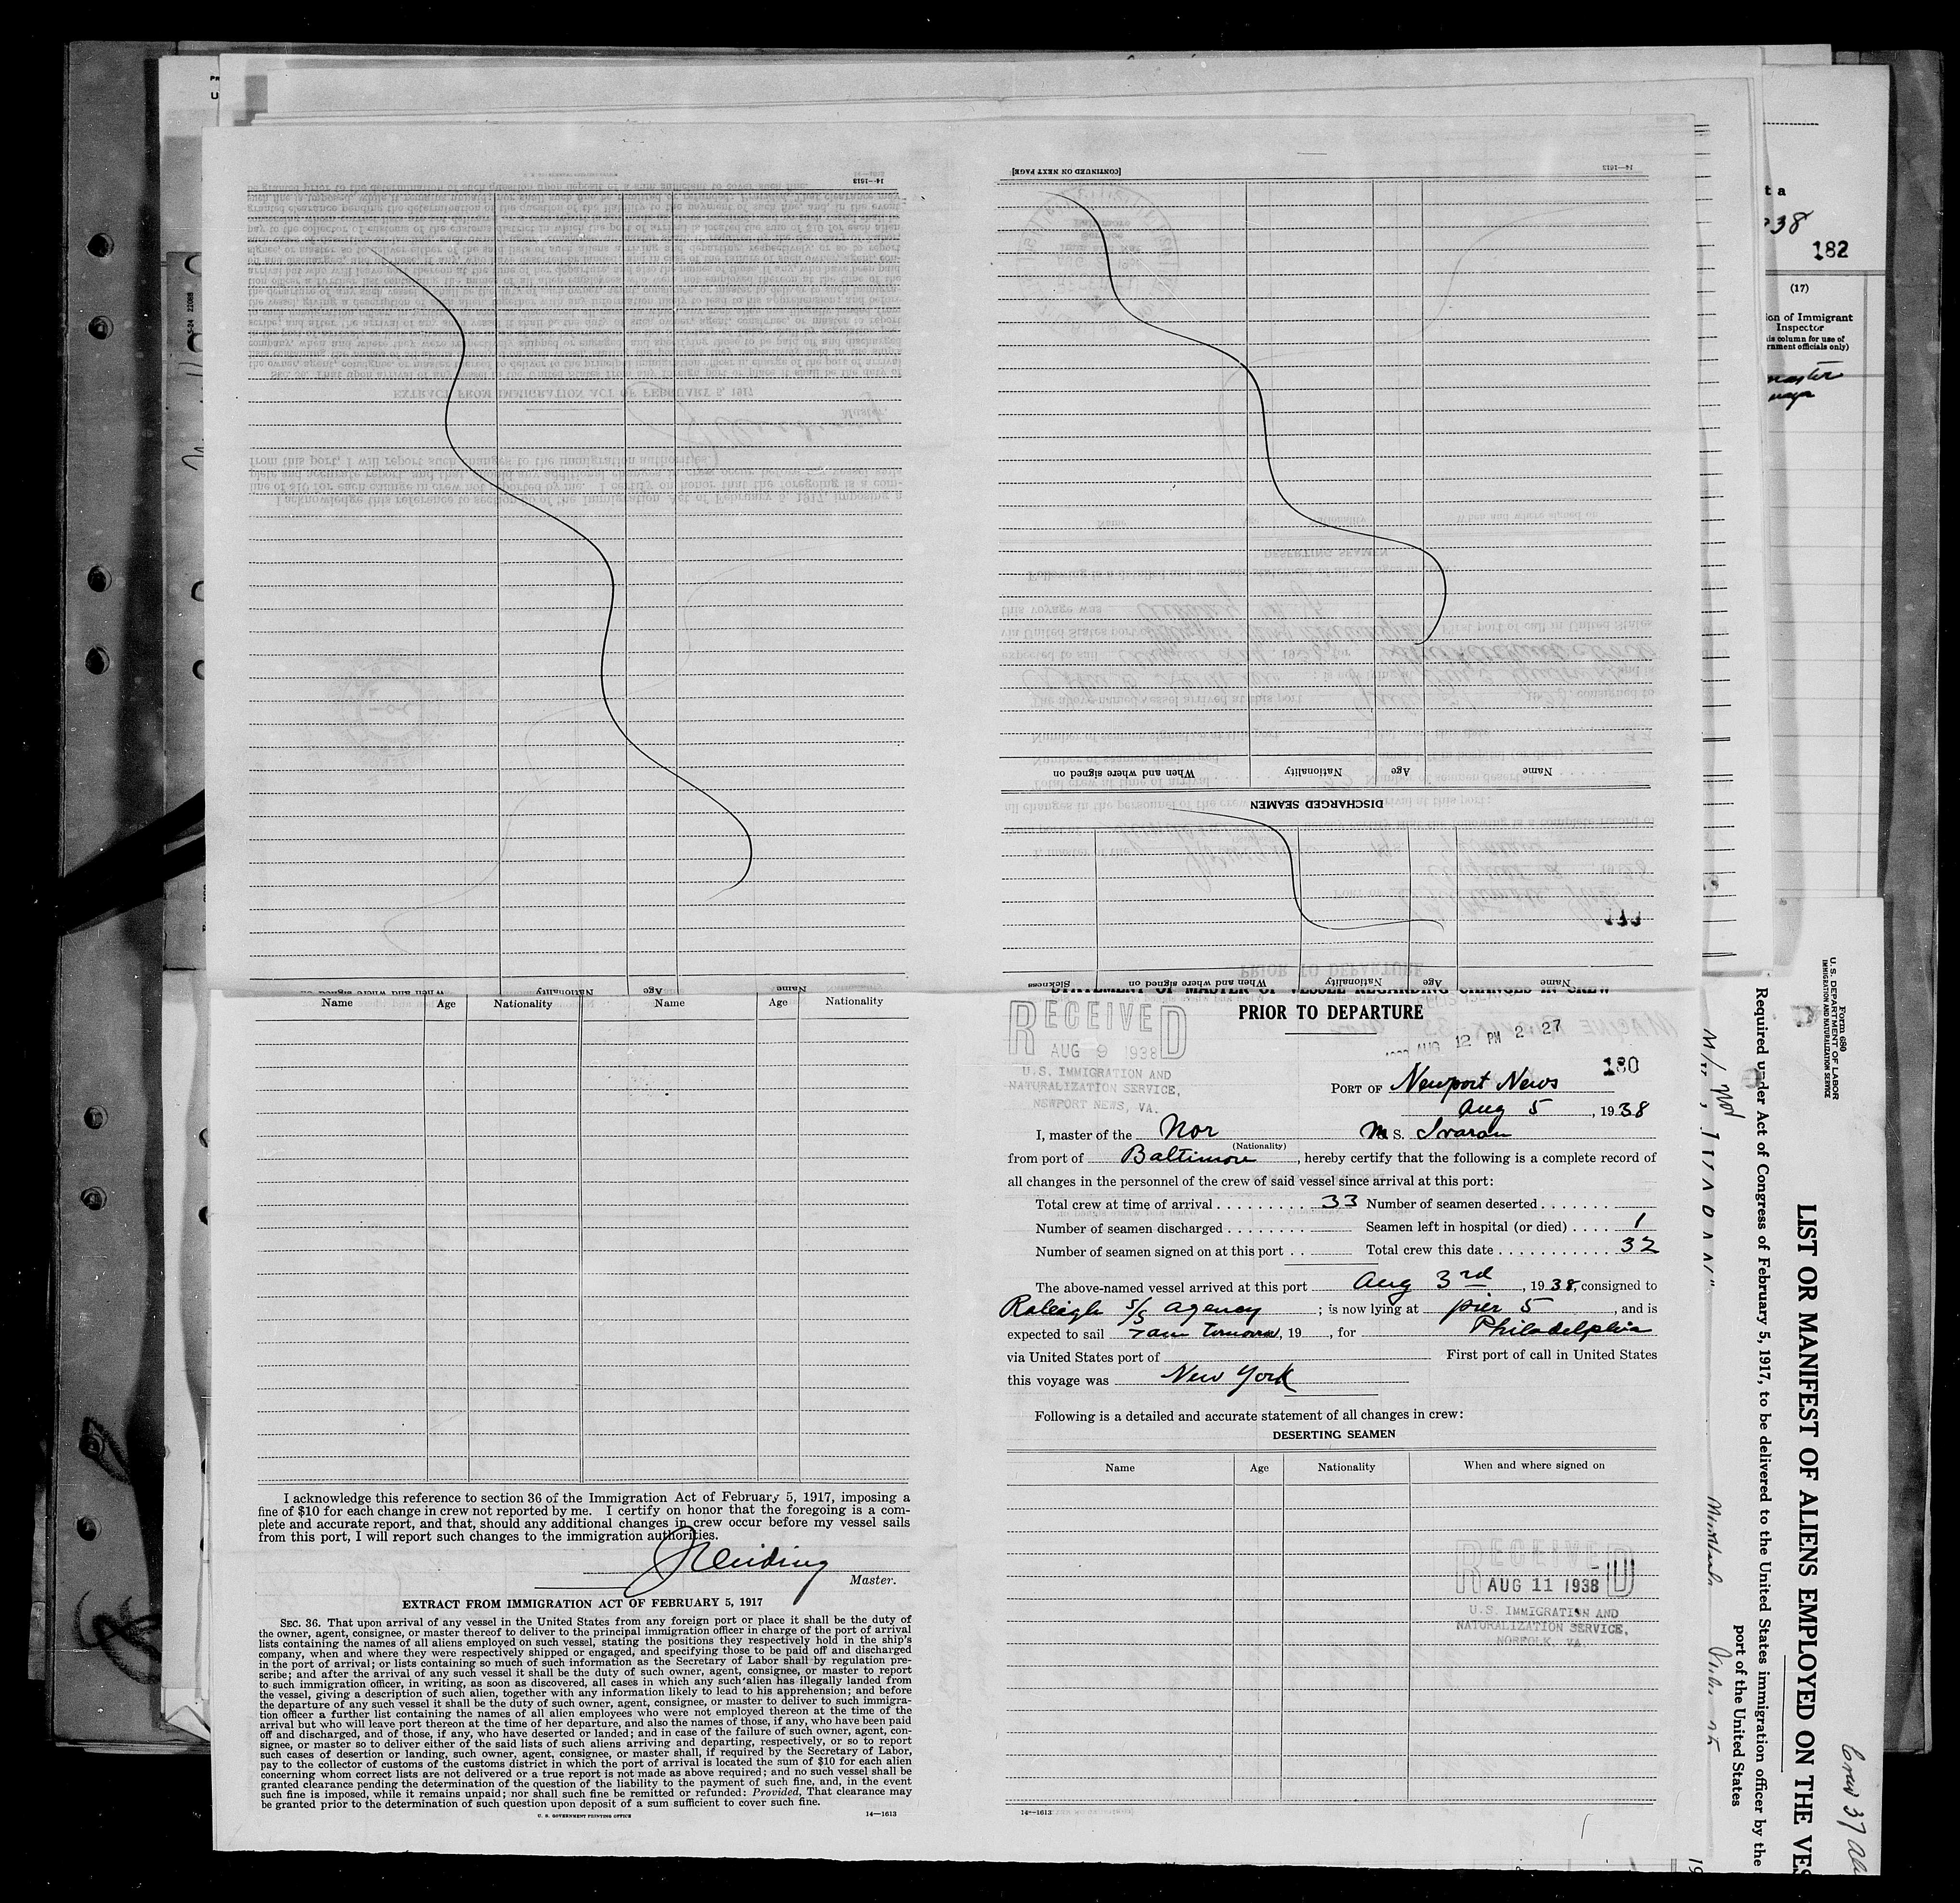 STATEMENT OF MASTER OF VESSEL REGARDING CHANGES IN CREW
PRIOR TO DEPARTURE
RECEIVED
AUG 9 1938
U.S. IMMIGRATION AND
NATURALIZATION SERVICE,
NEWPORT NEWS, VA.
AUG 12 PM 2:27
180
PORT OF Newport News
Aug 5, 1938
I, master of the Nor M S. Ivaran
(Nationality)
from port of Baltimore, hereby certify that the following is a complete record of
all changes in the personnel of the crew of said vessel since arrival at this port:
Total crew at time of arrival . . . . . . . . . 33 Number of seamen deserted . . . . . . .
Number of seamen discharged . . . . . . . . Seamen left in hospital (or died) . . . . 1
Number of seamen signed on at this port . . Total crew this date . . . . . . . . . . . 32
The above-named vessel arrived at this port Aug 3rd, 1938, consigned to
Raleigh S/S Agency ; is now lying at pier 5, and is
expected to sail 7am, 19, for Philadelphia
via United States port of First port of call in United States
this voyage was New York
Following is a detailed and accurate statement of all changes in crew:
DESERTING SEAMEN
Name Age Nationality When and where signed on
RECEIVED
AUG 11 1938
U.S. IMMIGRATION AND
NATURALIZATION SERVICE,
NORFOLK, VA.
14—1613
Name Age Nationality Name Age Nationality
I acknowledge this reference to section 36 of the Immigration Act of February 5, 1917, imposing a
fine of $10 for each change in crew not reported by me. I certify on honor that the foregoing is a com-
plete and accurate report, and that, should any additional changes in crew occur before my vessel sails
from this port, I will report such changes to the immigration authorities.
Master.
EXTRACT FROM IMMIGRATION ACT OF FEBRUARY 5, 1917
SEC. 36. That upon arrival of any vessel in the United States from any foreign port or place it shall be the duty of
the owner, agent, consignee, or master thereof to deliver to the principal immigration officer in charge of the port of arrival
lists containing the names of all aliens employed on such vessel, stating the positions they respectively hold in the ship's
company, when and where they were respectively shipped or engaged, and specifying those to be paid off and discharged
in the port of arrival; or lists containing so much of such information as the Secretary of Labor shall by regulation pre-
scribe; and after the arrival of any such vessel it shall be the duty of such owner, agent, consignee, or master to report
to such immigration officer, in writing, as soon as discovered, all cases in which any such alien has illegally landed from
the vessel, giving a description of such alien, together with any information likely to lead to his apprehension; and before
the departure of any such vessel it shall be the duty of such owner, agent, consignee, or master to deliver to such immigra-
tion officer a further list containing the names of all alien employees who were not employed thereon at the time of the
arrival but who will leave port thereon at the time of her departure, and also the names of those, if any, who have been paid
off and discharged, and of those, if any, who have deserted or landed; and in case of the failure of such owner, agent, con-
signee, or master so to deliver either of the said lists of such aliens arriving and departing, respectively, or so to report
such cases of desertion or landing, such owner, agent, consignee, or master shall, if required by the Secretary of Labor,
pay to the collector of customs of the customs district in which the port of arrival is located the sum of $10 for each alien
concerning whom correct lists are not delivered or a true report is not made as above required; and no such vessel shall be
granted clearance pending the determination of the question of the liability to the payment of such fine, and, in the event
such fine is imposed, while it remains unpaid; nor shall such fine be remitted or refunded: Provided, That clearance may
be granted prior to the determination of such question upon deposit of a sum sufficient to cover such fine.
U. S. GOVERNMENT PRINTING OFFICE 14—1613
[CONTINUED ON NEXT PAGE]
14—1613
Name Age Nationality When and where signed on
DISCHARGED SEAMEN
Name Age Nationality When and where signed on Sickness
14—1613
Name Age Nationality When and where signed on
ta
38
182
(17)
ion of Immigrant
Inspector
is column for use of
rnment officials only)
master
Form 680
U. S. DEPARTMENT OF LABOR
IMMIGRATION AND NATURALIZATION SERVICE
LIST OR MANIFEST OF ALIENS EMPLOYED ON THE VES
Required under Act of Congress of February 5, 1917, to be delivered to the United States immigration officer by the
port of the United States
Crew 37